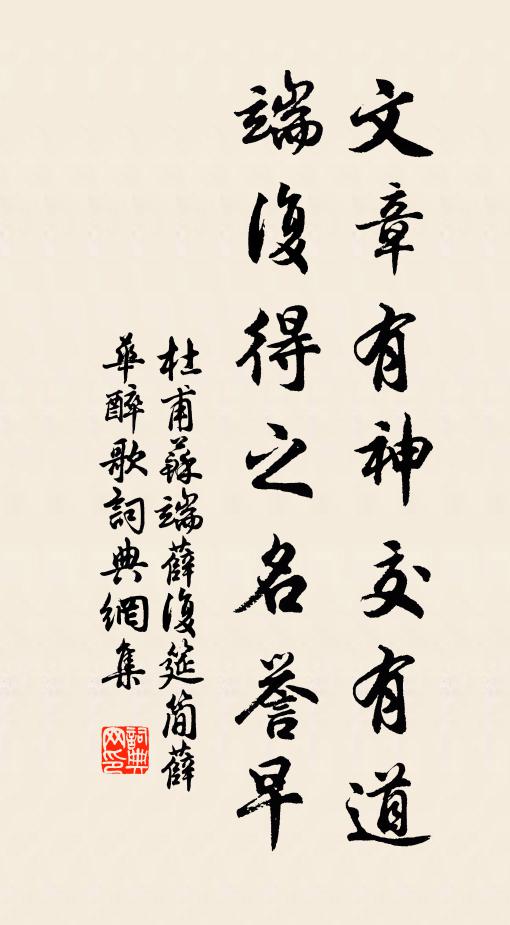 文章有神交有道
端復得之名譽早
杜甫蘇端薛復筵簡薛
華醉歌詞典網集
詞典网印